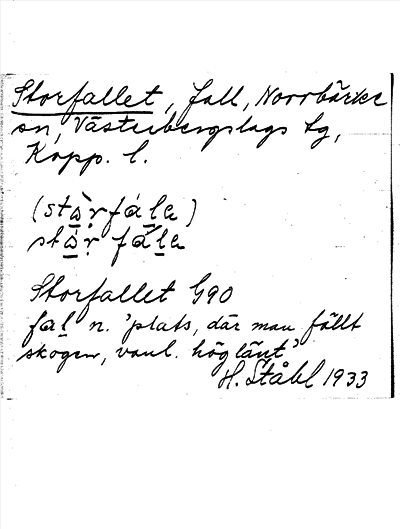 Storfallet, fall, Norrbärke
sn, Västerbergslags tg,
Kopp. l.
(stọ̀rfáḷa)
stọ̀ṛ fáḷa
Storfallet G90
faḷ n. 'plats, där man fällt
skogen, vanl. höglänt'
H. Ståhl 1933